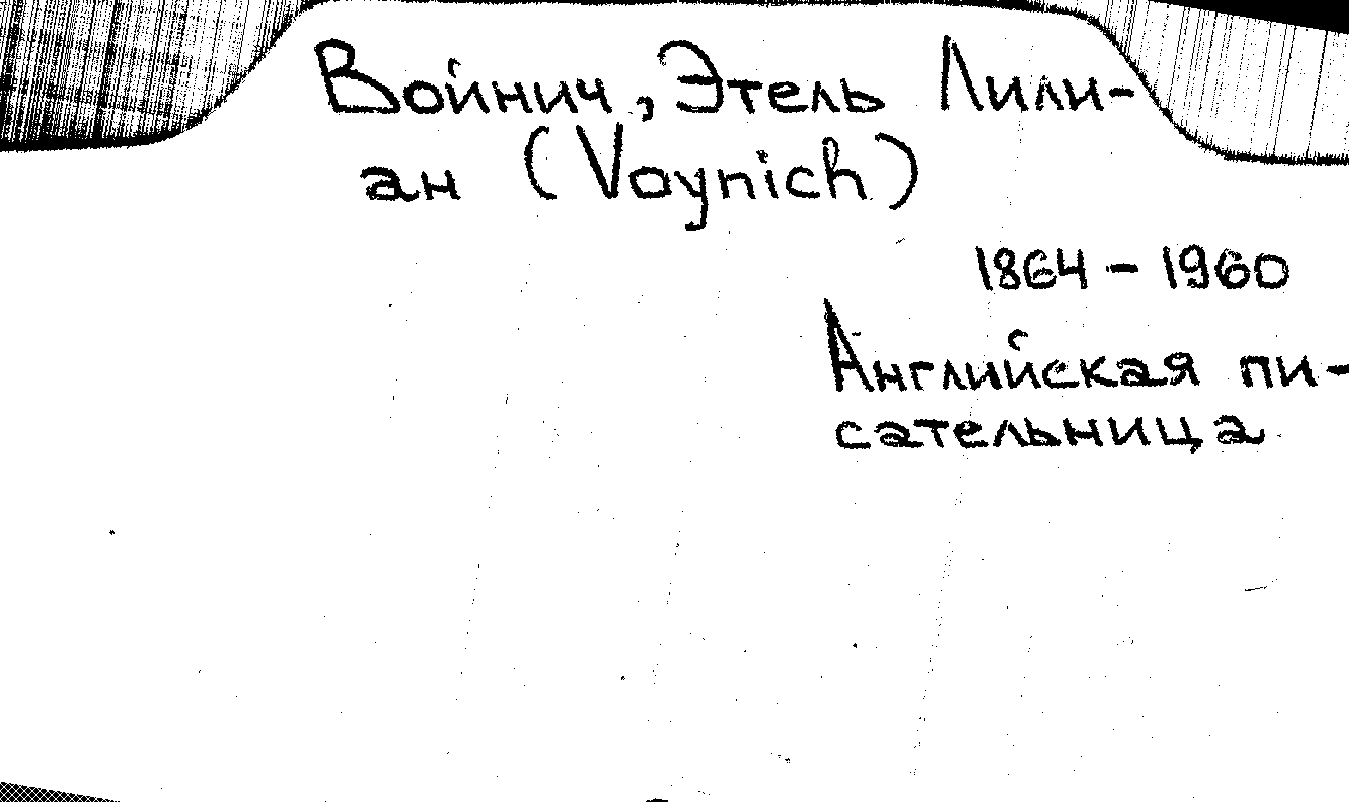 Войнич, Этель Лили-
ан (Voynich)
1864 - 1960
Английская пи-
сательница